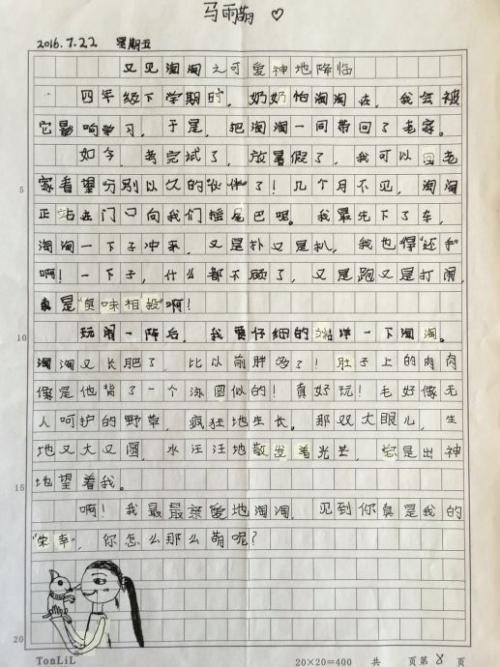 马雨萌
2016.7.22 星期五
又见淘淘之可爱神地降临
四年级下学期时，奶奶怕淘淘在，我会被
它影响学习，于是，把淘淘一同带回了老家。
如今，考完试了，放暑假了，我可以回老
家看望分别以久的伙伴了！几个月不见，淘淘
5
正站在门口向我们摇尾巴呢。我最先下了车，
淘淘一下子冲来，又是扑又是扒，我也得"还和
啊！一下子，什么都不顾了，又是跑又是打闹，
真是"臭味相投"啊！
玩闹一阵后，我要仔细的端详一下淘淘。
10
淘淘又长肥了，比以前胖多了！肚子上的肉肉
像是他背了一个泳圈似的！真好玩！毛好像无
人呵护的野草，疯狂地生长。那双大眼儿，生
地又大又圆，水汪汪地散发着光芒，总是出神
地望着我。
15
啊！我最最亲爱地淘淘，见到你真是我的
"荣幸"，你怎么那么萌呢？
20
TonLiL 20×20=400 共 页第 8 页